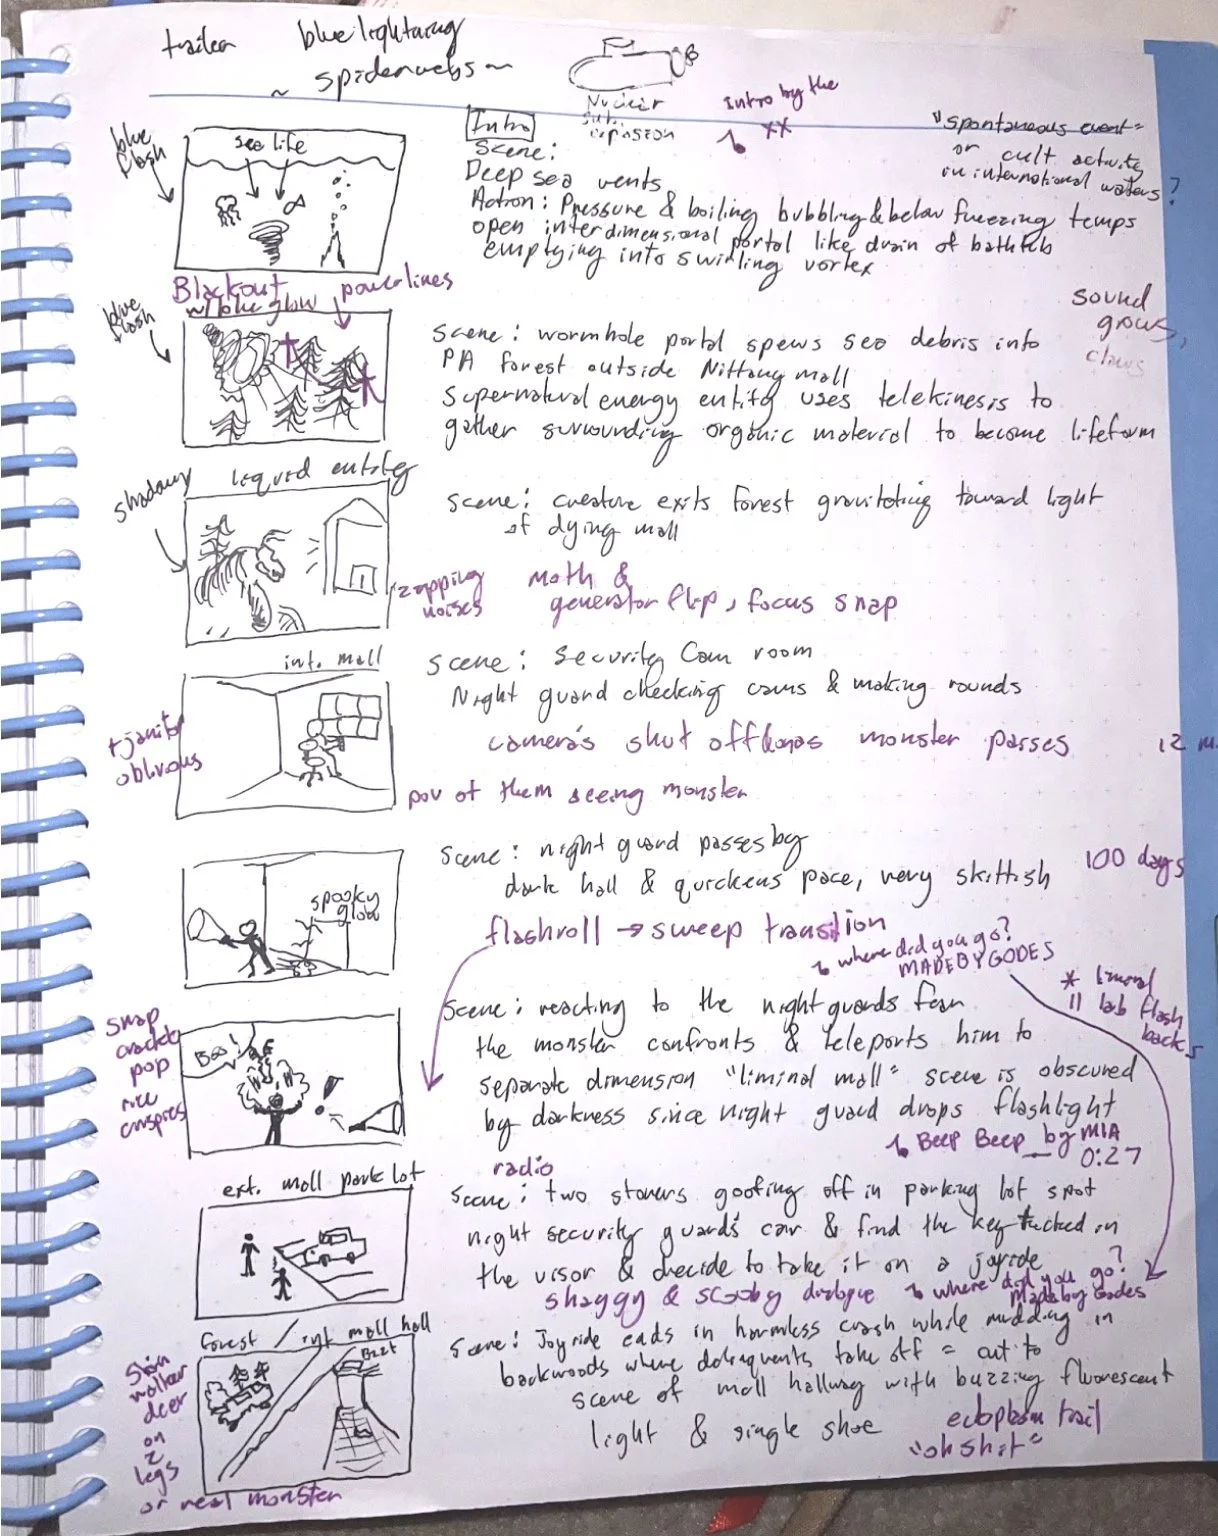 trailer
blue lightning
~ spiderwebs ~
Nuclear
sub
explosion
Intro by the
XX
"spontaneous event"
or cult activity
in international waters?
blue
flash
sea life
Intro
Scene:
Deep sea vents
Action: Pressure & boiling bubbling & below freezing temps
open interdimensional portal like drain of bathtub
emptying into swirling vortex
Blackout
w/ blue glow
powerlines
blue
flash
sound
grows,
claws
Scene: wormhole portal spews sea debris into
PA forest outside Nittany mall
Supernatural energy entity uses telekinesis to
gather surrounding organic material to become lifeform
shadowy
liquid entity
Scene: creature exits forest gravitating toward light
of dying mall
zapping
noises
Moth &
generator flip, focus snap
int. mall
Scene: Security Cam room
Night guard checking cams & making rounds
+ janitor
oblivious
camera's shut off as monster passes
12 m
pov of them seeing monster
Scene: night guard passes by
dark hall & quickens pace, very skittish
100 days
spooky
glow
flashroll → sweep transition
where did you go?
MADEBYGODES
* liminal
|| lab flash
backs
Scene: reacting to the night guards fear
the monster confronts & teleports him to
separate dimension "liminal mall" scene is obscured
by darkness since night guard drops flashlight
snap
crackle
pop
rice
crispies
Boo!
Beep Beep by MIA
0:27
radio
ext. mall park lot
Scene: two stoners goofing off in parking lot spot
night security guard's car & find the key tucked in
the visor & decide to take it on a joyride
shaggy & scooby dialogue
where did you go?
Made by Godes
Forest / int mall hall
Bzzt
Scene: Joyride ends in harmless crash while mudding in
backwoods where delinquents take off = cut to
scene of mall hallway with buzzing fluorescent
light & single shoe
ectoplasm trail
"oh shit"
Skin
walker
deer
on
2
legs
or real monster